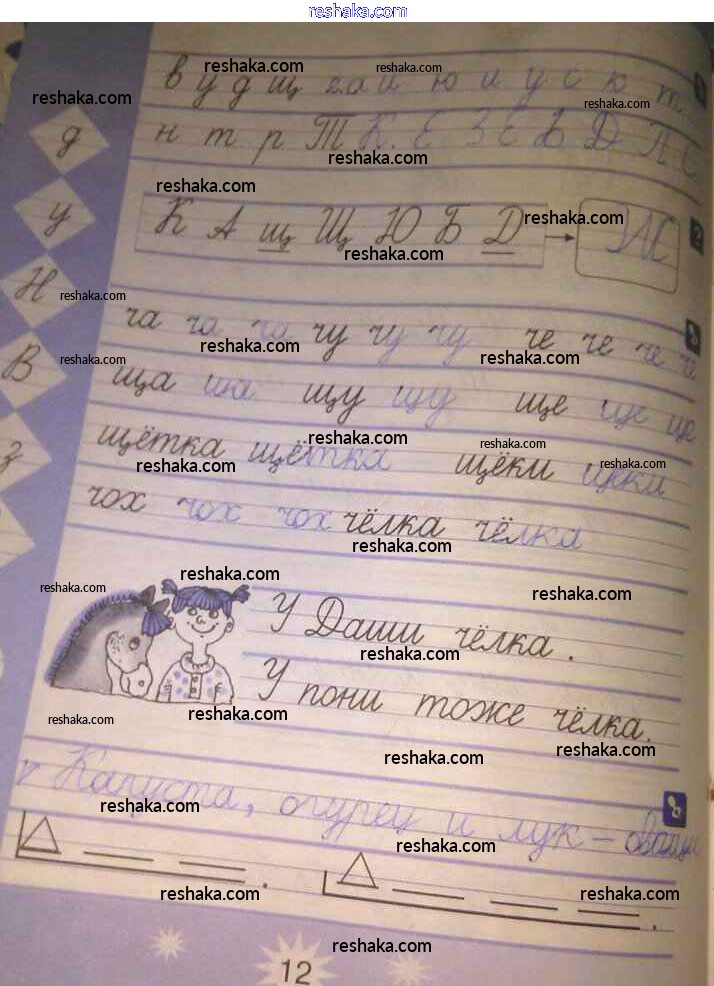 reshaka.com
в у д щ г а й ю и у с к т
н т р Т К Е З Е Ь Д П С
К А щ Щ Ю Б Д Ж
ча ча ча чу чу чу че че че че
ща ща щу щу ще ще ще
щётка щётка щёки щёки
чох чох чох чёлка чёлка
У Даши чёлка.
У пони тоже чёлка.
Капуста, огурец и лук – овощи
12
д
у
Н
В
З